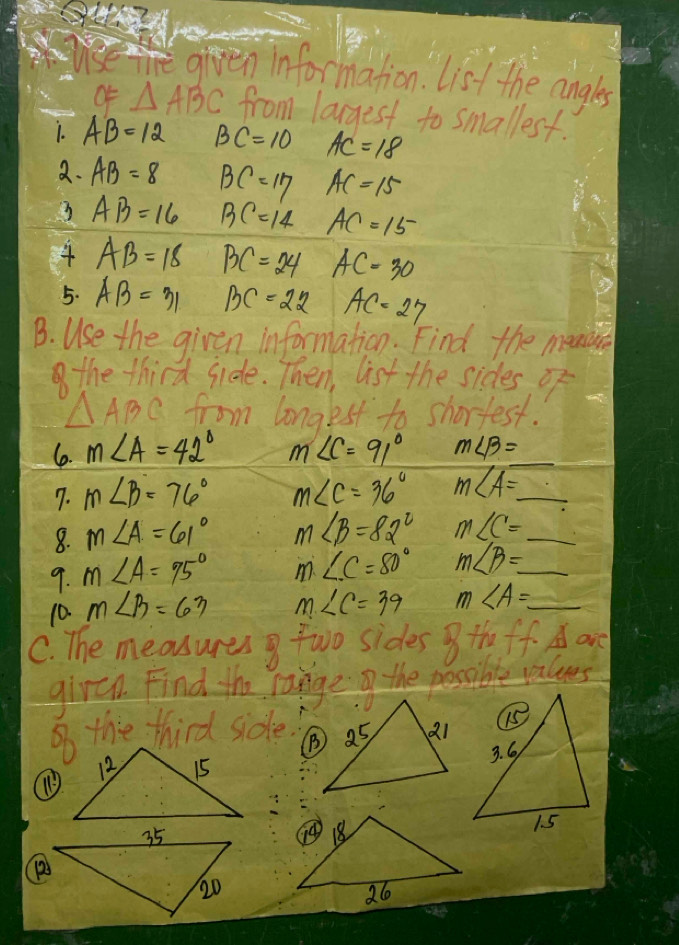 QUIZ
A. Use the given information. List the angles
of △ ABC from largest to smallest.
1. AB=12 BC=10 AC=18
2. AB=8 BC=17 AC=15
3 AB=16 BC=14 AC=15
4 AB=18 BC=24 AC=30
5. AB=31 BC=22 AC=27
B. Use the given information. Find the measure
of the third side. Then, list the sides of
△ ABC from longest to shortest.
6. m∠A=42° m∠C=91° m∠B=___
7. m∠B=76° m∠C=36° m∠A=___
8. m∠A=61° m∠B=82° m∠C=___
9. m∠A=75° m∠C=80° m∠B=___
10. m∠B=63 m∠C=39 m∠A=___
C. The measures of two sides of the ff. △ are
given. Find the range of the possible values
of the third side.
11. 12 15
12 35 20
13 25 21
14 18 26
15 3.6 1.5